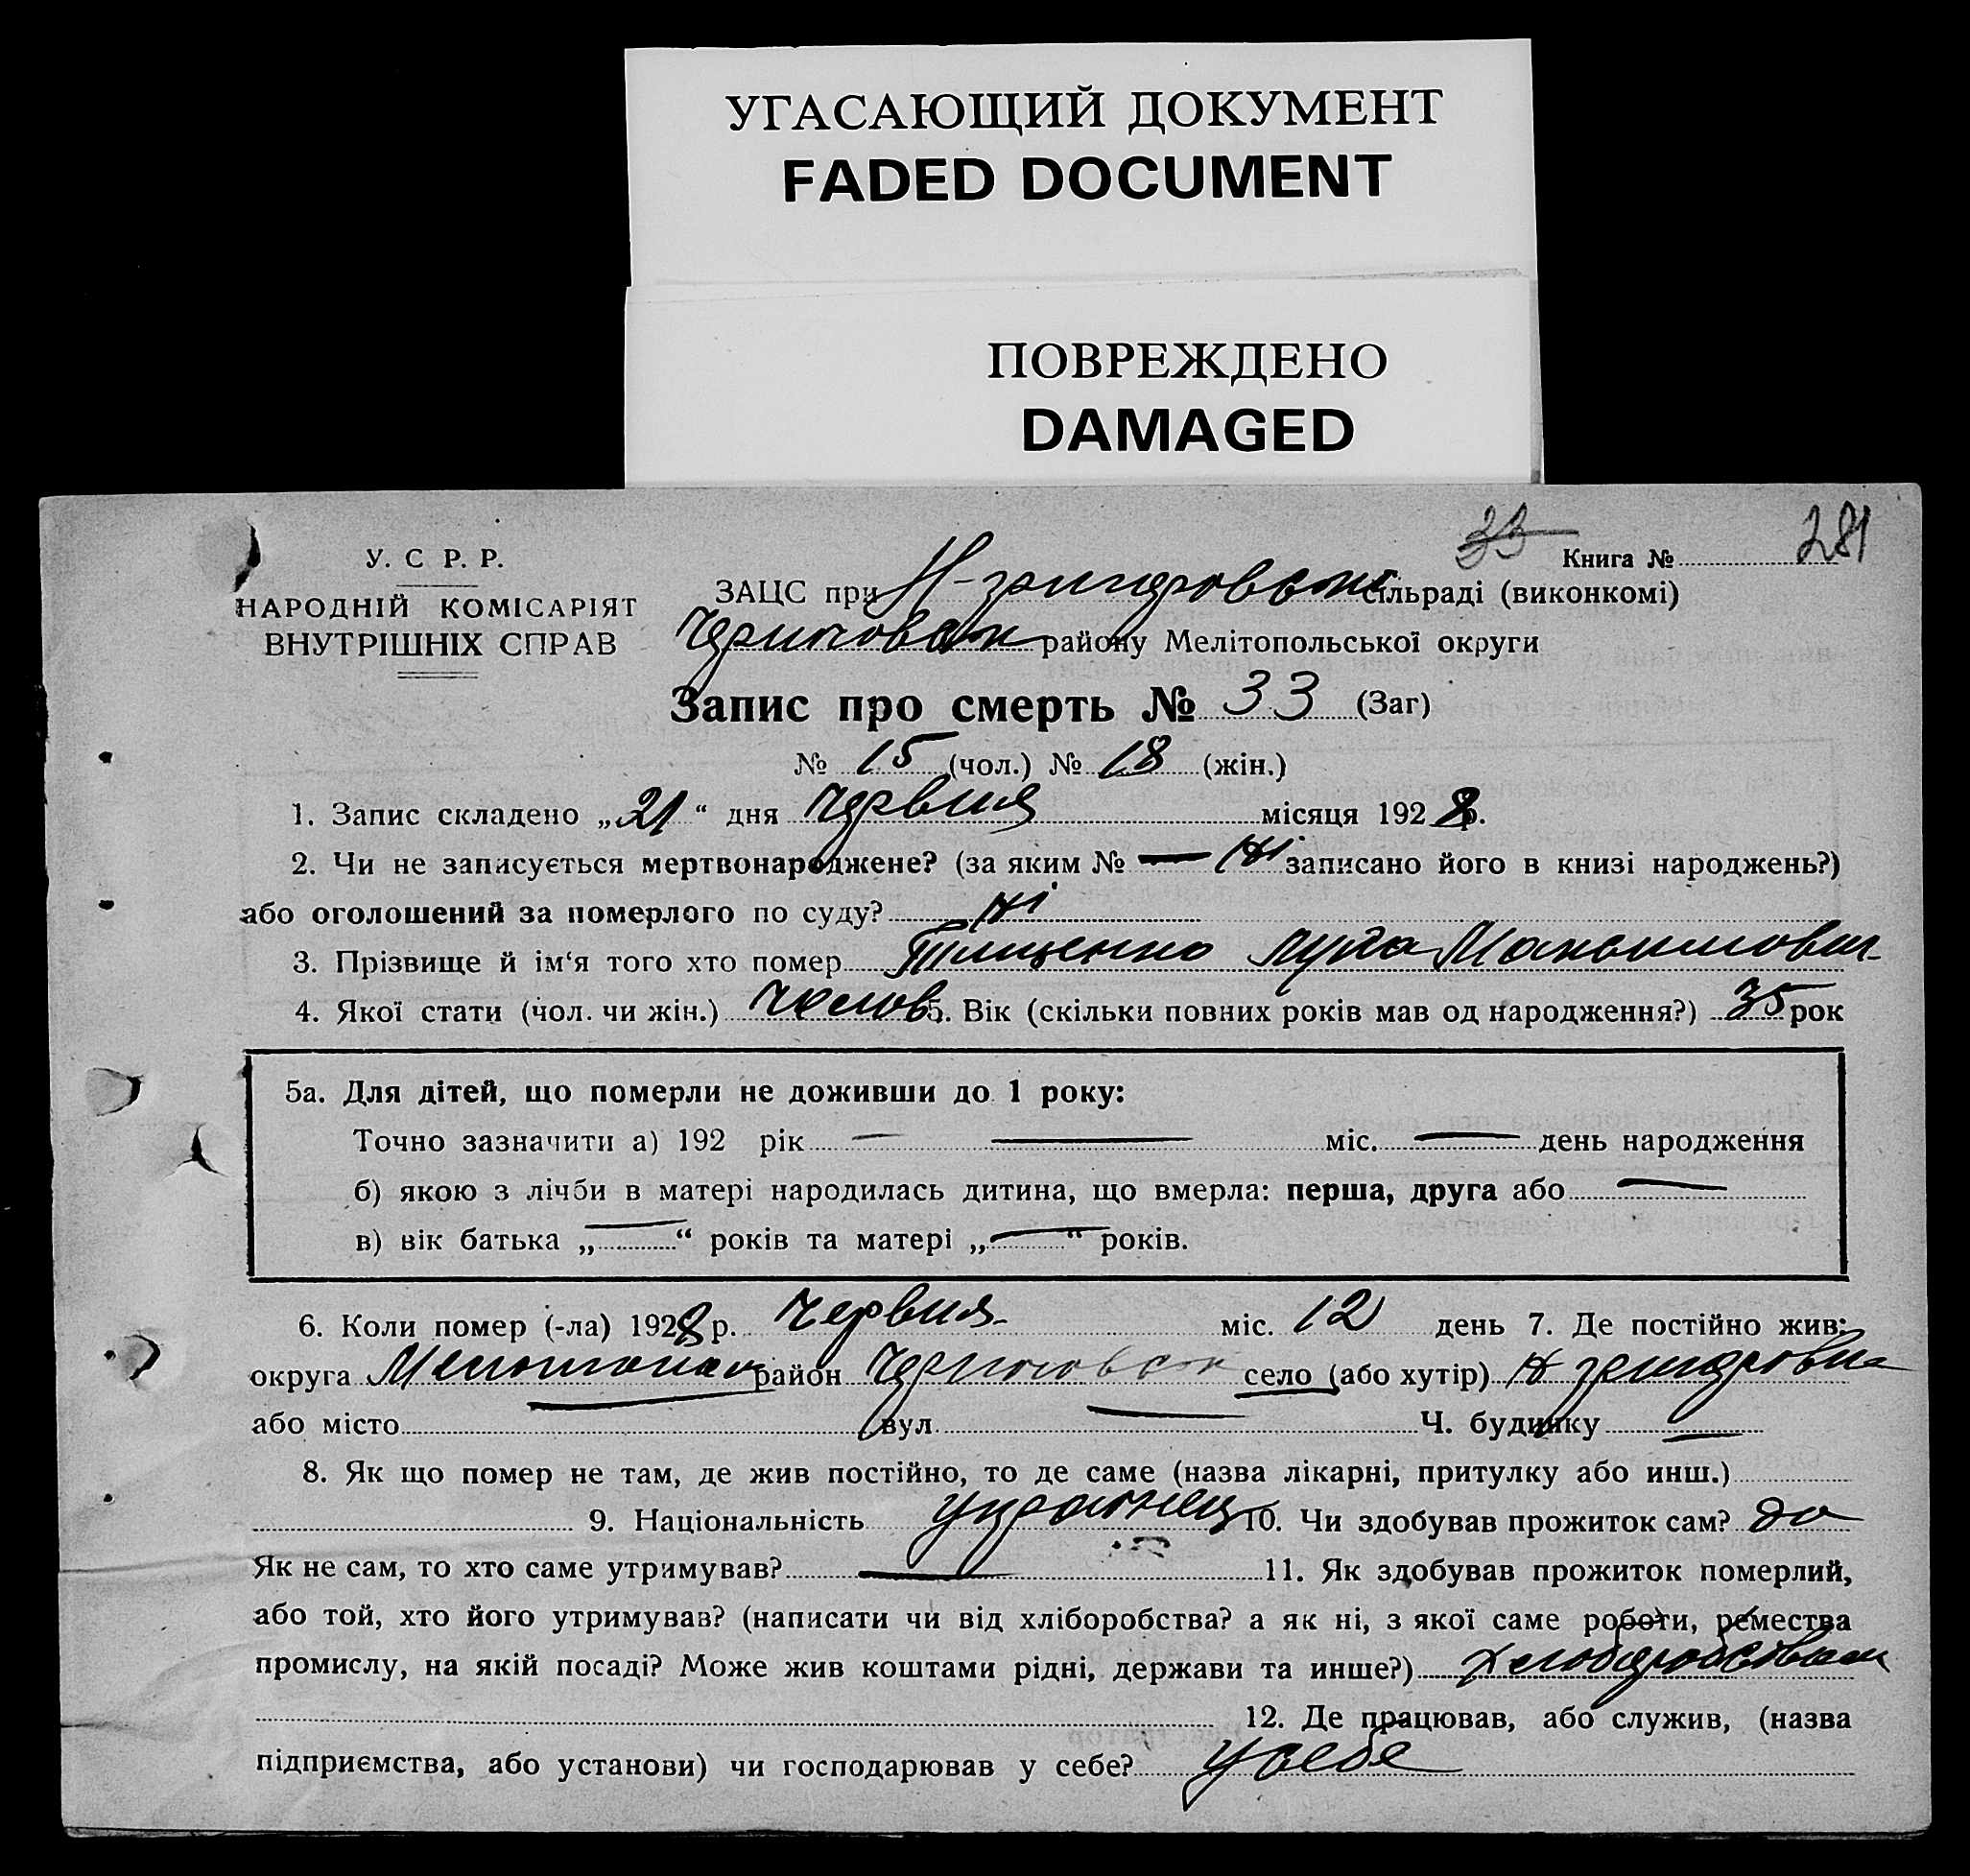 УГАСАЮЩИЙ ДОКУМЕНТ
FADED DOCUMENT
ПОВРЕЖДЕНО
DAMAGED
33 Книга № 281
У. С Р. Р.
НАРОДНІЙ КОМІСАРІЯТ
ВНУТРІШНІХ СПРАВ
ЗАЦС при сільраді (виконкомі)
району Мелітопольської округи
Запис про смерть № 33 (Заг)
№ 15 (чол.) № 18 (жін.)
1. Запис складено „21“ дня Червня місяця 1928 р.
2. Чи не записується мертвонароджене? (за яким № — ні записано його в книзі народжень?)
або оголошений за померлого по суду? ні
3. Прізвище й ім‘я того хто помер Тищенко Максимович
4. Якої стати (чол. чи жін.) Челов. 5. Вік (скільки повних років мав од народження?) 35 рок
5а. Для дітей, що померли не доживши до 1 року:
Точно зазначити а) 192 рік — — міс. — день народження
б) якою з лічби в матері народилась дитина, що вмерла: перша, друга або —
в) вік батька „—“ років та матері „—“ років.
6. Коли помер (-ла) 1928 р. Червня міс. 12 день 7. Де постійно жив:
округа район село (або хутір)
або місто — вул. — Ч. будинку —
8. Як що помер не там, де жив постійно, то де саме (назва лікарні, притулку або инш.)
9. Національність 10. Чи здобував прожиток сам? да
Як не сам, то хто саме утримував? — 11. Як здобував прожиток померлий,
або той, хто його утримував? (написати чи від хліборобства? а як ні, з якої саме роботи, ремества
промислу, на якій посаді? Може жив коштами рідні, держави та инше?)
12. Де працював, або служив, (назва
підприємства, або установи) чи господарював у себе? У себе